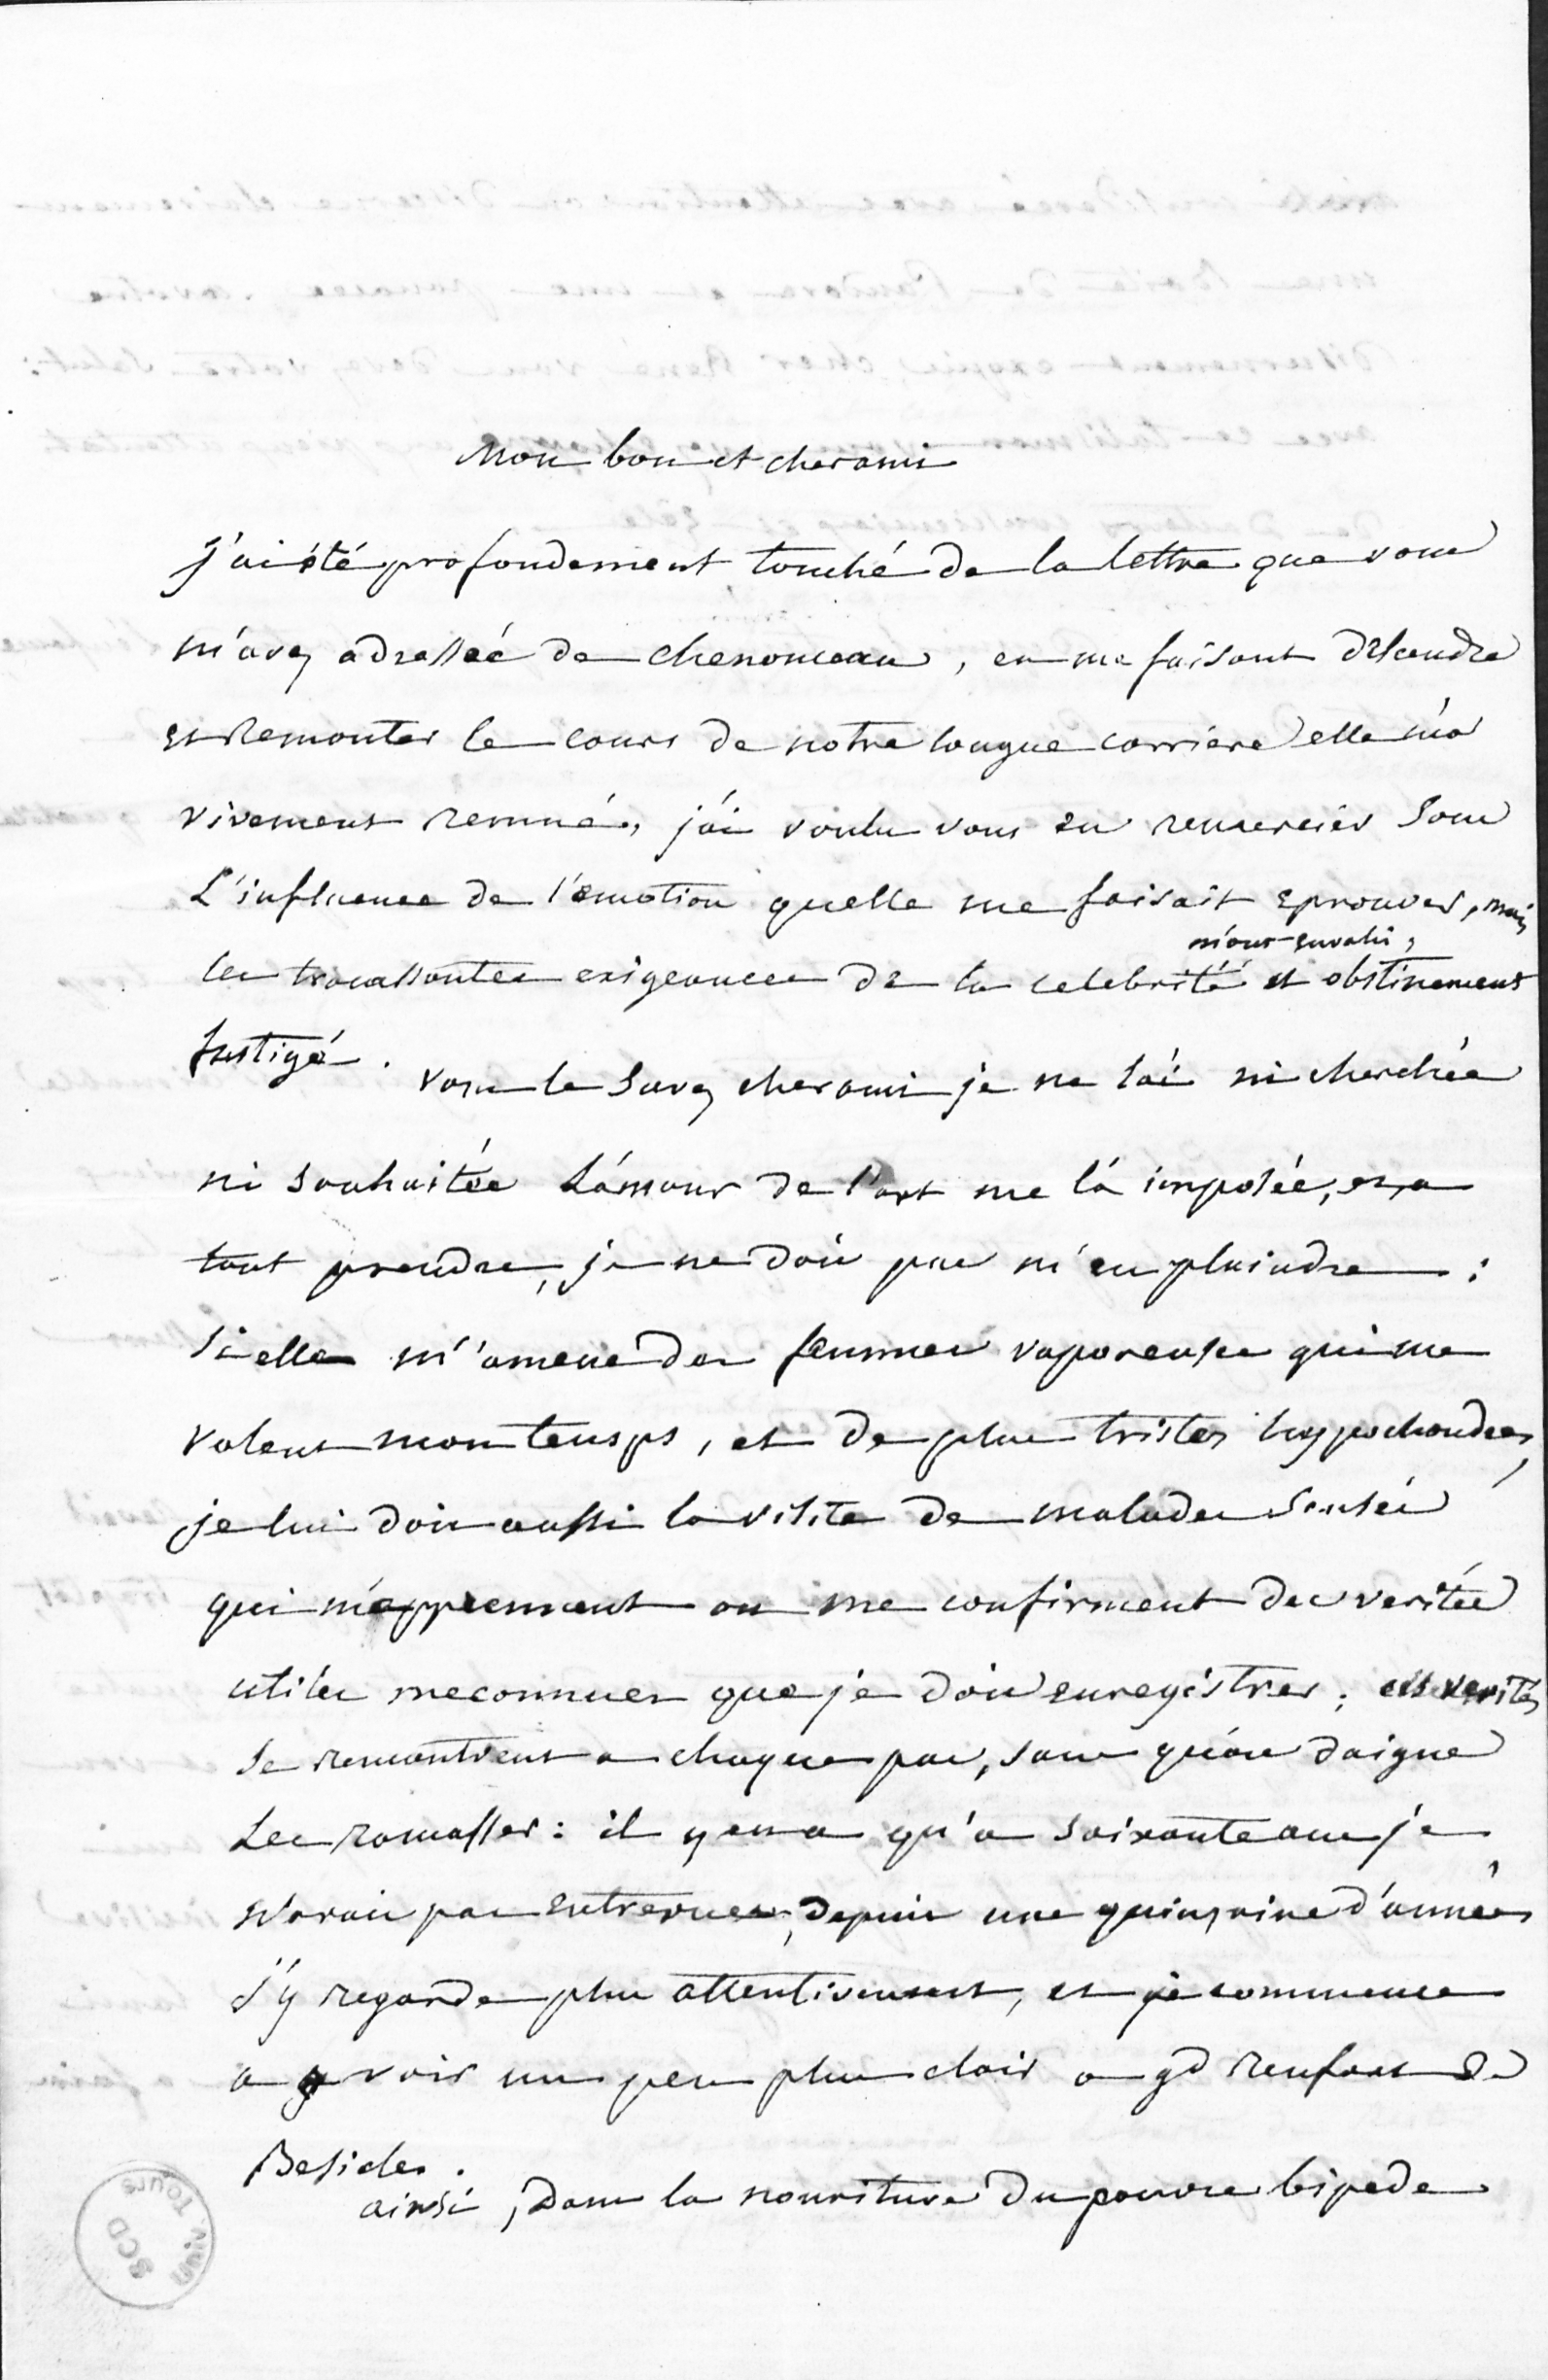 Mon bon et cher ami
J'ai été profondement touché de la lettre que vous
m'avez adressée de chenonceau, en me faisant descendre
et Remonter le cours de notre longue carriere elle m'a
vivement remué, j'ai voulu vous en remercier sous
L'influence de l'émotion quelle me faisait eprouver, mais
m'ont envahi,
les tracassantes exigeances de la celebrité et obstinement
fustigé.
vous le savez cher ami je ne l'ai ni cherchée
ni souhaitée L'amour de l'art me l'a imposée, et, a
tout prendre, je ne dois pas m'en plaindre :
Si elle m'amene des femmes vaporeuses qui me
volent mon temps, et de plus tristes hypochondres,
je lui dois aussi la visite de malades sensés
qui m'apprennent ou me confirment des verités
utiles meconnues que je dois enregistrer ; ces verités
se rencontrent a chaque pas, sans qu'on daigne
Les ramasser : il y en a qu'a soixante ans je
n'avais pas entrevues, depuis une quinzaine d'années
J'y regarde plus attentivement, et je commence
a y voir un peu plus clair a gd renfort de
Besicles.
ainsi, dans la nouriture du pauvre bipede
UNIV TOURS
SCD